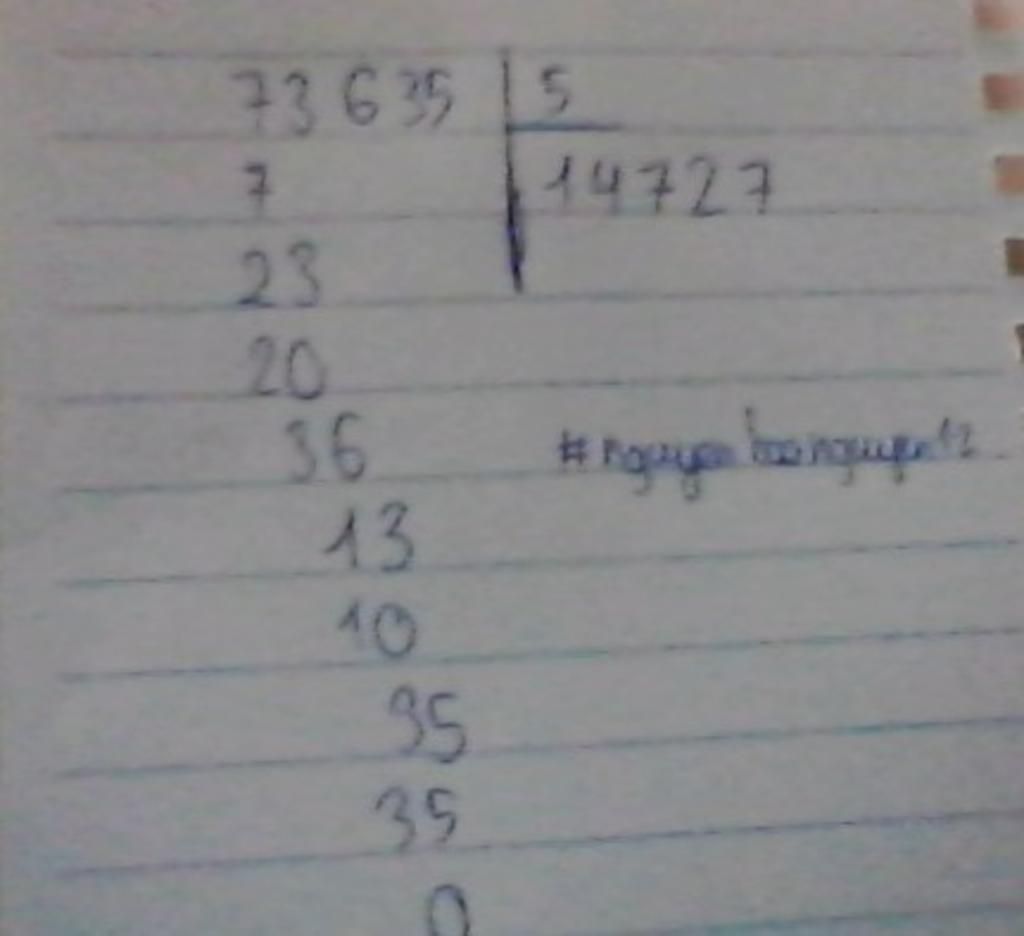 73 635 5
7 14727
23
20
36
13
10
35
35
0